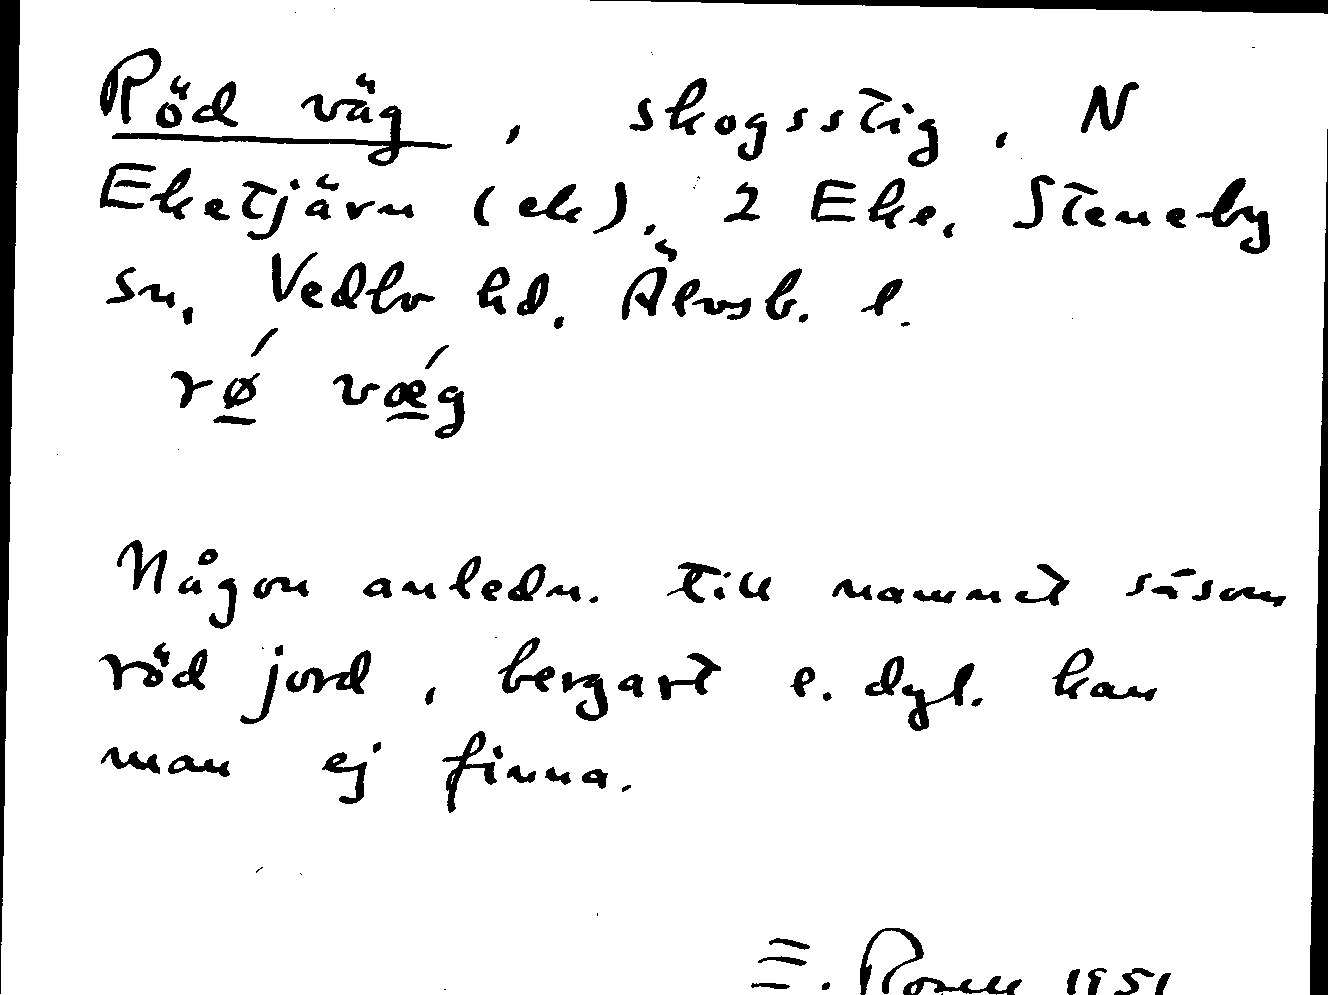 Röd väg, skogsstig, N
Eketjärn (ek), 2 Eke, Steneby
sn, Vedbo hd. Älvsb. l.
rǿ vǽg
Någon anledn. till namnet såsom
röd jord, bergart e. dyl. kan
man ej finna.
E. Rosell 1951